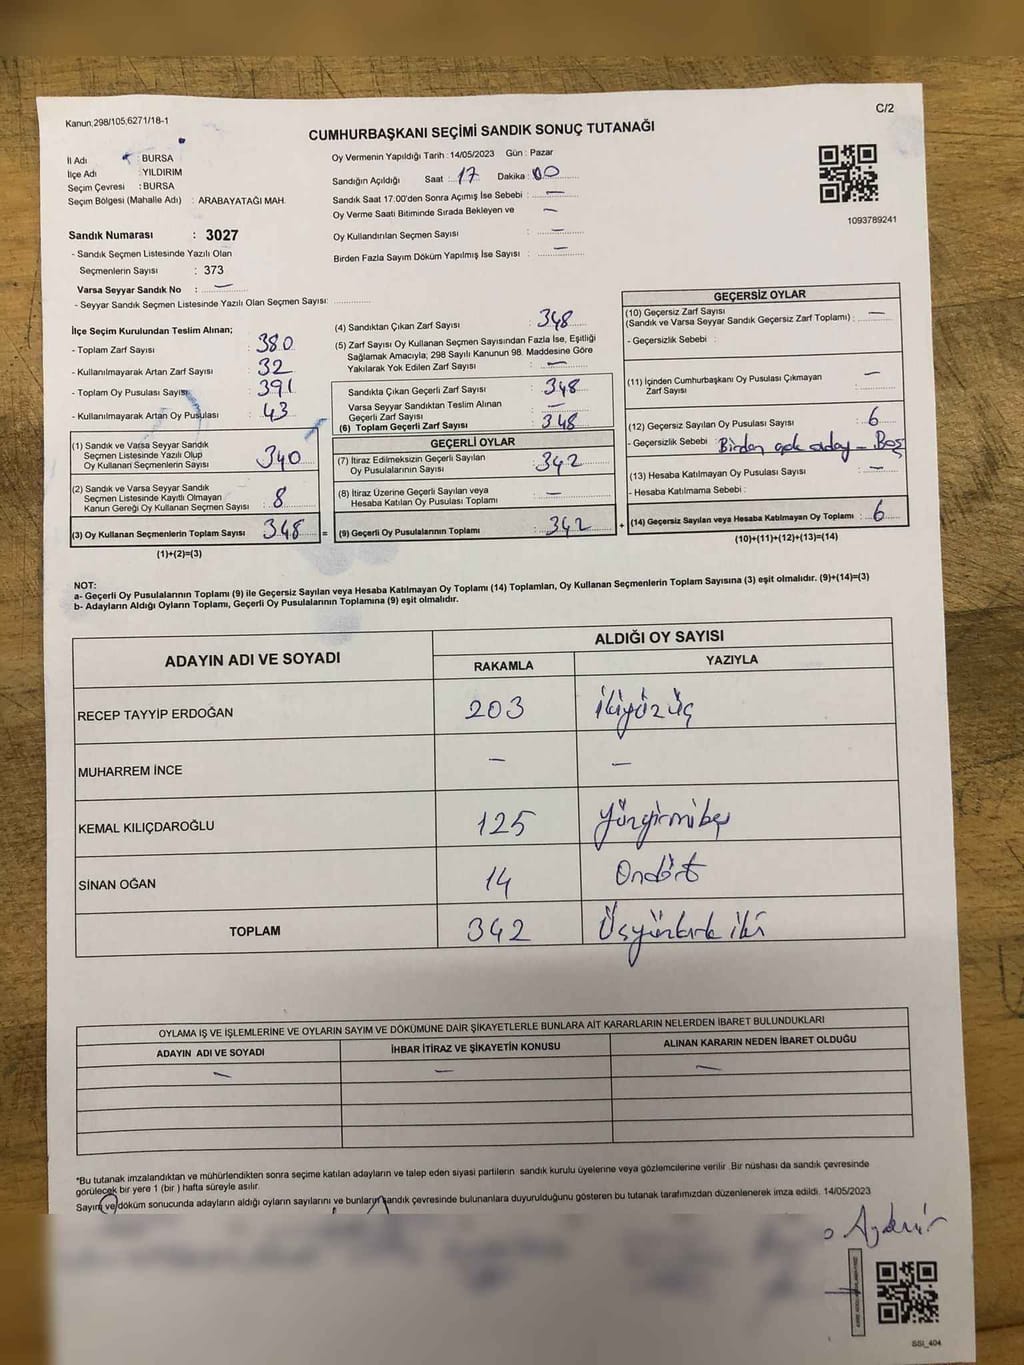 Kanun,298/105,6271/18-1
C/2
CUMHURBAŞKANI SEÇİMİ SANDIK SONUÇ TUTANAĞI
İl Adı : BURSA
İlçe Adı : YILDIRIM
Seçim Çevresi : BURSA
Seçim Bölgesi (Mahalle Adı) : ARABAYATAĞI MAH.
Sandık Numarası : 3027
- Sandık Seçmen Listesinde Yazılı Olan
Seçmenlerin Sayısı : 373
Varsa Seyyar Sandık No : —
- Seyyar Sandık Seçmen Listesinde Yazılı Olan Seçmen Sayısı:
Oy Vermenin Yapıldığı Tarih : 14/05/2023 Gün : Pazar
Sandığın Açıldığı Saat : 17 Dakika : 00
Sandık Saat 17.00'den Sonra Açımış İse Sebebi : —
Oy Verme Saati Bitiminde Sırada Bekleyen ve —
Oy Kullandırılan Seçmen Sayısı : —
Birden Fazla Sayım Döküm Yapılmış İse Sayısı : —
1093789241
İlçe Seçim Kurulundan Teslim Alınan;
- Toplam Zarf Sayısı : 380
- Kullanılmayarak Artan Zarf Sayısı : 32
- Toplam Oy Pusulası Sayısı : 391
- Kullanılmayarak Artan Oy Pusulası : 43
(1) Sandık ve Varsa Seyyar Sandık
Seçmen Listesinde Yazılı Olup
Oy Kullanan Seçmenlerin Sayısı : 340
(2) Sandık ve Varsa Seyyar Sandık
Seçmen Listesinde Kayıtlı Olmayan
Kanun Gereği Oy Kullanan Seçmen Sayısı : 8
(3) Oy Kullanan Seçmenlerin Toplam Sayısı : 348 =
(1)+(2)=(3)
(4) Sandıktan Çıkan Zarf Sayısı : 348
(5) Zarf Sayısı Oy Kullanan Seçmen Sayısından Fazla İse, Eşitliği
Sağlamak Amacıyla; 298 Sayılı Kanunun 98. Maddesine Göre
Yakılarak Yok Edilen Zarf Sayısı : —
Sandıkta Çıkan Geçerli Zarf Sayısı : 348
Varsa Seyyar Sandıktan Teslim Alınan
Geçerli Zarf Sayısı : —
(6) Toplam Geçerli Zarf Sayısı : 348
GEÇERLİ OYLAR
(7) İtiraz Edilmeksizin Geçerli Sayılan
Oy Pusulasının Sayısı : 342
(8) İtiraz Üzerine Geçerli Sayılan veya
Hesaba Katılan Oy Pusulası Toplamı : —
(9) Geçerli Oy Pusulalarının Toplamı : 342 +
GEÇERSİZ OYLAR
(10) Geçersiz Zarf Sayısı
(Sandık ve Varsa Seyyar Sandık Geçersiz Zarf Toplamı) : —
- Geçersizlik Sebebi :
(11) İçinden Cumhurbaşkanı Oy Pusulası Çıkmayan
Zarf Sayısı : —
(12) Geçersiz Sayılan Oy Pusulası Sayısı : 6
- Geçersizlik Sebebi : Birden çok aday - Boş
(13) Hesaba Katılmayan Oy Pusulası Sayısı : —
- Hesaba Katılmama Sebebi :
(14) Geçersiz Sayılan veya Hesaba Katılmayan Oy Toplamı : 6
(10)+(11)+(12)+(13)=(14)
NOT:
a- Geçerli Oy Pusulalarının Toplamı (9) ile Geçersiz Sayılan veya Hesaba Katılmayan Oy Toplamı (14) Toplamları, Oy Kullanan Seçmenlerin Toplam Sayısına (3) eşit olmalıdır. (9)+(14)=(3)
b- Adayların Aldığı Oyların Toplamı, Geçerli Oy Pusulalarının Toplamına (9) eşit olmalıdır.
ADAYIN ADI VE SOYADI
ALDIĞI OY SAYISI
RAKAMLA YAZIYLA
RECEP TAYYİP ERDOĞAN 203 İkiyüzüç
MUHARREM İNCE — —
KEMAL KILIÇDAROĞLU 125 Yüzyirmibeş
SİNAN OĞAN 14 Ondört
TOPLAM 342 Üçyüzkırk iki
OYLAMA İŞ VE İŞLEMLERİNE VE OYLARIN SAYIM VE DÖKÜMÜNE DAİR ŞİKAYETLERLE BUNLARA AİT KARARLARIN NELERDEN İBARET BULUNDUKLARI
ADAYIN ADI VE SOYADI İHBAR İTİRAZ VE ŞİKAYETİN KONUSU ALINAN KARARIN NEDEN İBARET OLDUĞU
— — —
*Bu tutanak imzalandıktan ve mühürlendikten sonra seçime katılan adayların ve talep eden siyasi partilerin sandık kurulu üyelerine veya gözlemcilerine verilir .Bir nüshası da sandık çevresinde
görülecek bir yere 1 (bir ) hafta süreyle asılır.
Sayım ve döküm sonucunda adayların aldığı oyların sayılarını ve bunların sandık çevresinde bulunanlara duyurulduğunu gösteren bu tutanak tarafımızdan düzenlenerek imza edildi. 14/05/2023
SSİ_404